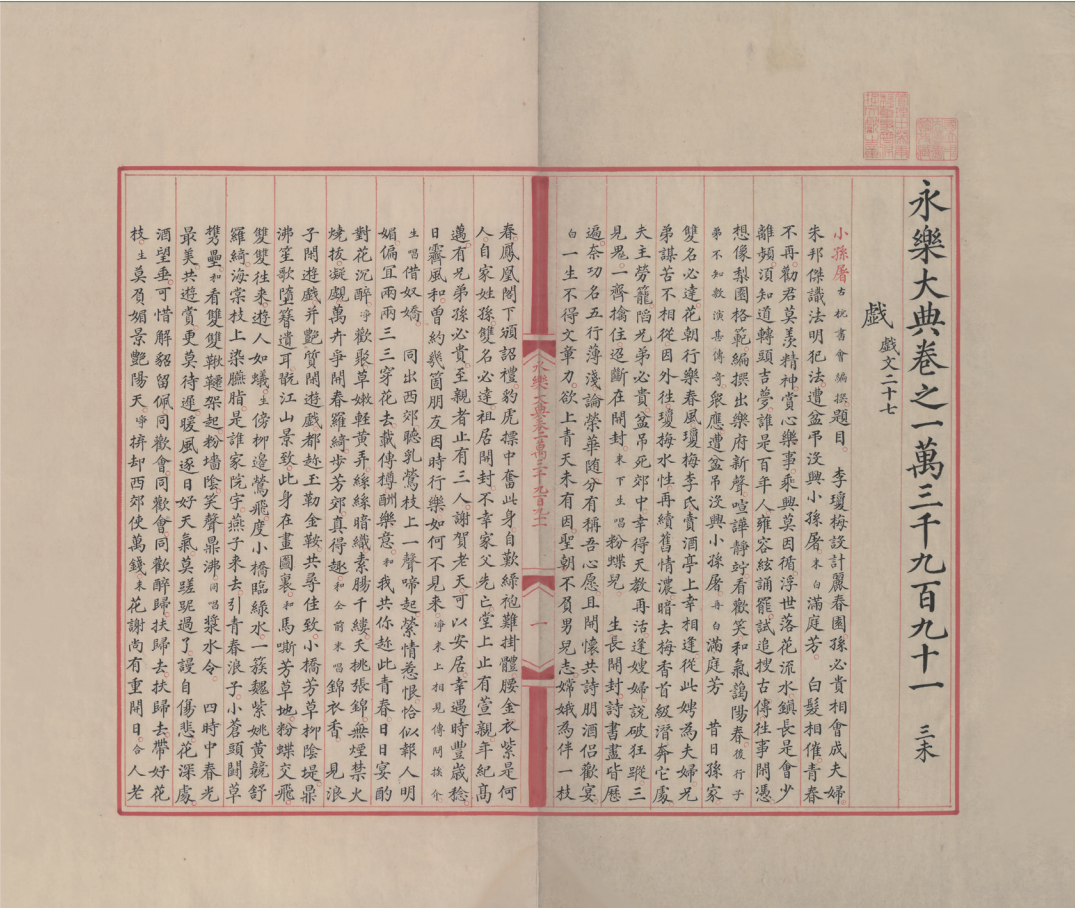 永樂大典卷之一萬三千九百九十一 三未
戲 戲文二十七
小孫屠 古杭書會編撰 題目。 李瓊梅設計麗春園 孫必貴相會成夫婦
朱邦傑識法明犯法 遭盆弔沒興小孫屠。末白 滿庭芳。 白髮相催。青春
不再。勸君莫羡精神。賞心樂事。乘興莫因循。浮世落花流水。鎮長是會少
離頻。須知道轉頭吉夢。誰是百年人。雍容絃誦罷。試追搜古傳。往事閒憑。
想像梨園格範。編撰出樂府新聲。喧譁靜。竚看歡笑。和氣藹陽春。後行子
弟不知敷演甚傳奇。衆應遭盆吊沒興小孫屠。再白 滿庭芳 昔日孫家
雙名必達。花朝行樂春風。瓊梅李氏。賣酒亭上幸相逢。從此娉為夫婦。兄
弟謀苦不相從。因外往瓊梅水性。再續舊情濃。暗去梅香首級。潛奔它處
夫主勞籠。陷兄弟必貴。盆吊死郊中。幸得天教再活。逢嫂婦說破狂蹤。三
見鬼。一齊擒住。迢斷在開封。末下生唱 粉蝶兒。 生長開封。詩書盡皆歷
遍。奈功名五行薄淺。論榮華隨分有。稱吾心愿。且開懷共詩朋酒侶歡宴。
白 一生不得文章力。欲上青天未有因。聖朝不負男兒志。嫦娥為伴一枝
春。鳳凰閣下頒詔禮。豹虎摽中奮此身。自歎綠袍難掛體。腰金衣紫是何
人。自家姓孫雙名必達。祖居開封。不幸家父先亡。堂上止有萱親。年紀高
邁。有兄弟孫必貴。至親者止有三人。謝賀老天可以安居。幸遇時豐歲稔
日霽風和。曽約幾箇朋友。因時行樂。如何不見來。凈末上相見傳問揍介。
生唱 惜奴嬌 同出西郊。聽乳鶯枝上一聲啼起。縈情惹恨。恰似報人明
媚。偏宜兩兩三三。穿花去。裁傳樽酬樂意。和我共你。趂此青春日日宴酌
對花沉醉。凈歡聚。草嫩輕黃。弄絲絲暗織。素腸千縷。夭桃張錦。無煙禁火
燒拔。凝覷萬卉爭開春羅綺。步芳郊真得趣。和仝前末唱 錦衣香 見浪
子閒遊戲。并艷質閒遊戲。都趂玉勒金鞍。共尋佳致。小橋芳草柳陰堤。鼎
沸笙歌。墮簪遺耳。翫江山景致。此身在畫圖裏。和馬嘶芳草地。粉蝶交飛。
雙雙往來。遊人如蟻。生傍柳邊鶯飛。度小橋臨綠水。一簇魏紫姚黃。競舒
羅綺。海棠枝上染臙脂。是誰家院宇。燕子來去。引青春浪子。小蒼頭鬪草
擕壘。和看雙雙鞦韆架起。粉墻陰笑聲鼎沸。同唱 漿水令。 四時中春光
最美。共遊賞更莫待遲。暖風逐日好天氣。莫蹉跎過了。謾自傷悲。花深處
酒望垂。可惜解貂留佩。同歡會。同歡會。同歡醉歸。扶歸去。扶歸去。帶好花
枝。生莫負媚景艷陽天。凈 拚却西郊使萬錢。末 花謝尚有重開日。合 人老
永樂大典卷一萬三千九百九十一
一